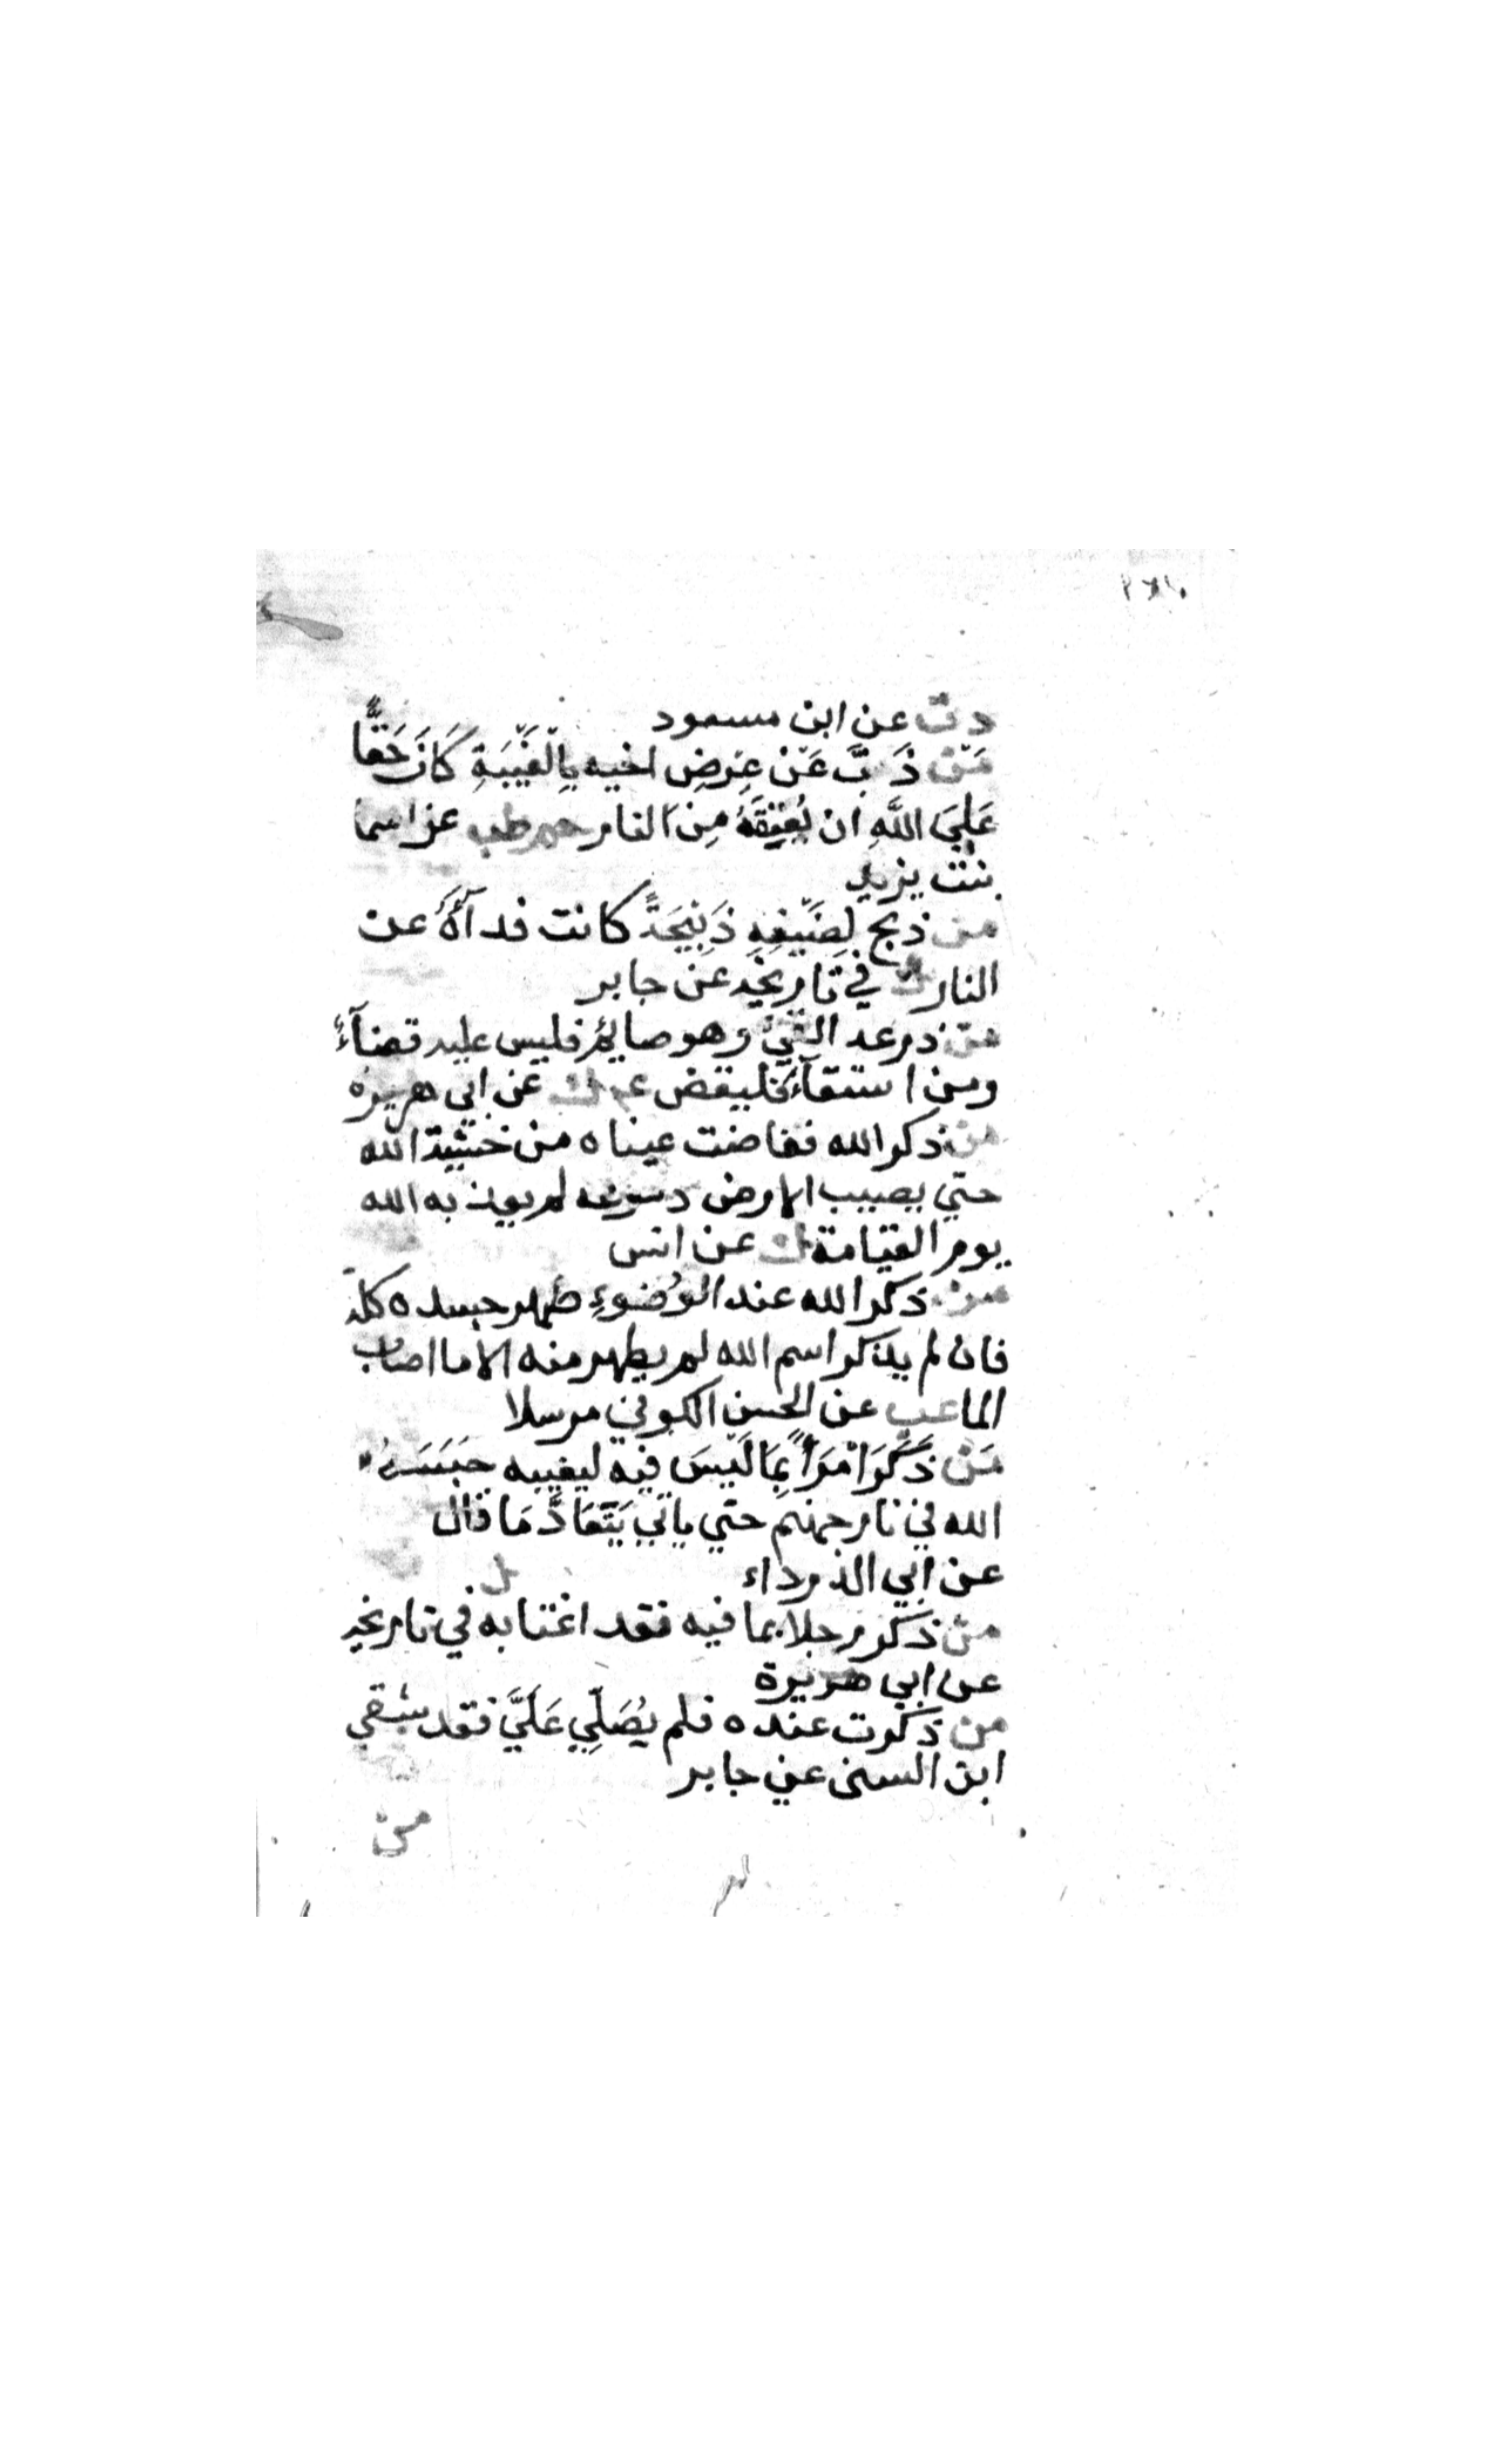 د ت عن ابن مسعود
مَن ذَبَّ عَنْ عِرضِ اخيه بِالْغَيْبَةِ كَانَ حَقًّا
عَلَيَ اللَّهِ ان يُعْتِقَهُ مِنَ النار حم طب عن اسما
بنت يزيد
من ذبح لِضَيْفِهِ ذَبِيحَةً كانت فدآهُ عن
النار ك في تاريخه عن جابر
من ذرعه القيئ وهو صايم فليس عليه قضآءٌ
ومن استقآءَ فليقض عه ك عن ابي هريره
من ذكر الله ففاضت عيناه من خشية الله
حتي يصيب الارض دموعه لم يعذبه الله
يوم القيامة ك عن انس
من ذكر الله عند الوُضوءِ طهر جسده كلهُ
فان لم يذكر اسم الله لم يطهر منه الا ما اصاب
الما عب عن الحسن الكوفي مرسلا
مَن ذَكَرَ امْرَأً بِمَا لَيْسَ فيه ليعيبه حَبَسَهُ
الله في نار جهنم حتي ياتي بِنَفَاذِ مَا قال
عن ابي الدرداء
من ذكر رجلا بما فيه فقد اغتابه ك في تاريخه
عن ابي هريرة
من ذكرت عنده فلم يُصَلِّي عَلَيَّ فقد شقي
ابن السنى عن جابر
من